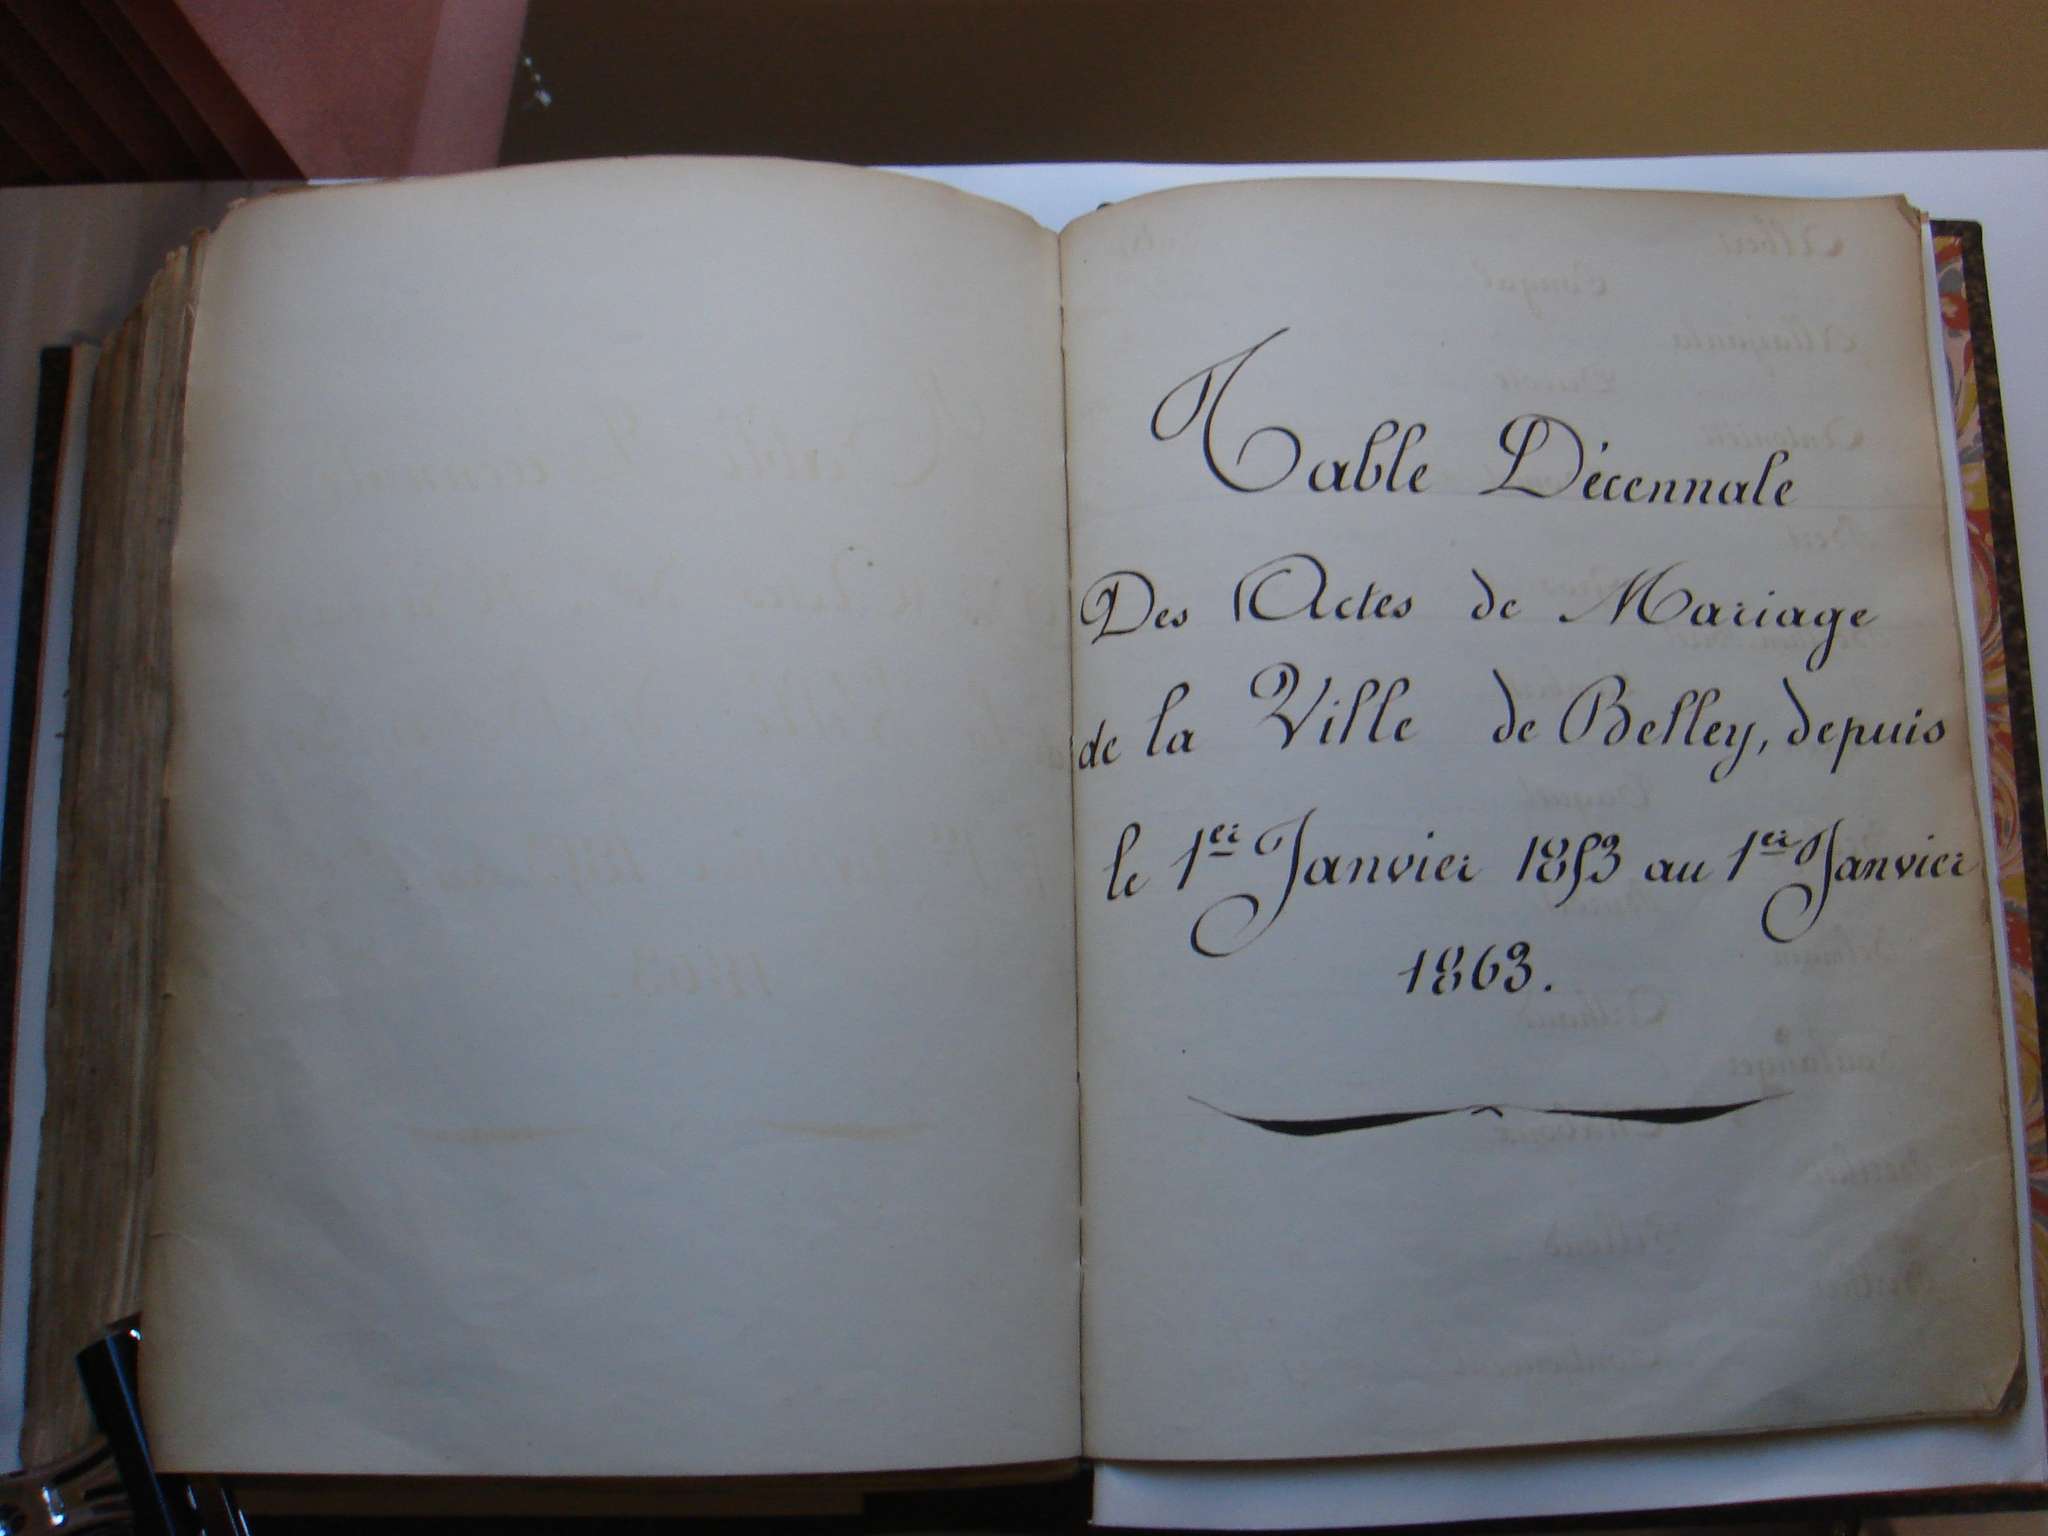 Table Décennale
Des Actes de Mariage
de la Ville de Belley, depuis
le 1er Janvier 1853 au 1er Janvier
1863.